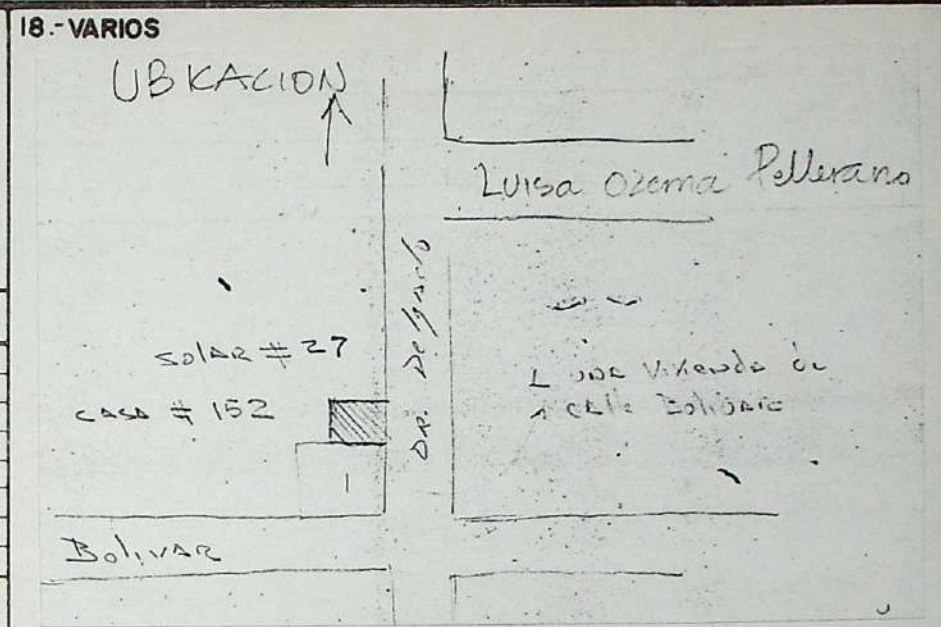 18.-VARIOS
UBKACION
Luisa Ozema Pellerano
Dr. Delgado
solar # 27
casa # 152
1 una Vivienda de
1 calle Bolivar
1
Bolivar